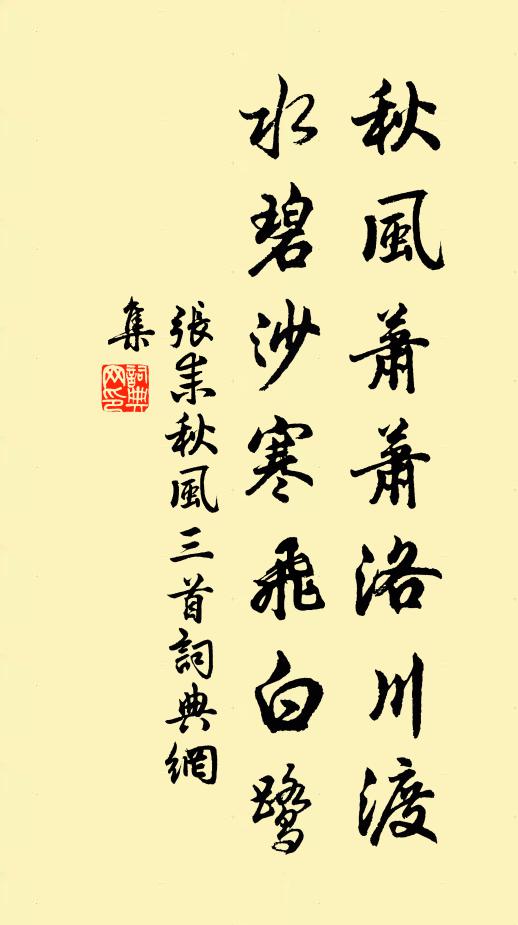 秋風蕭蕭洛川渡
水碧沙寒飛白鷺
張耒秋風三首詞典網
集
詞典
网印